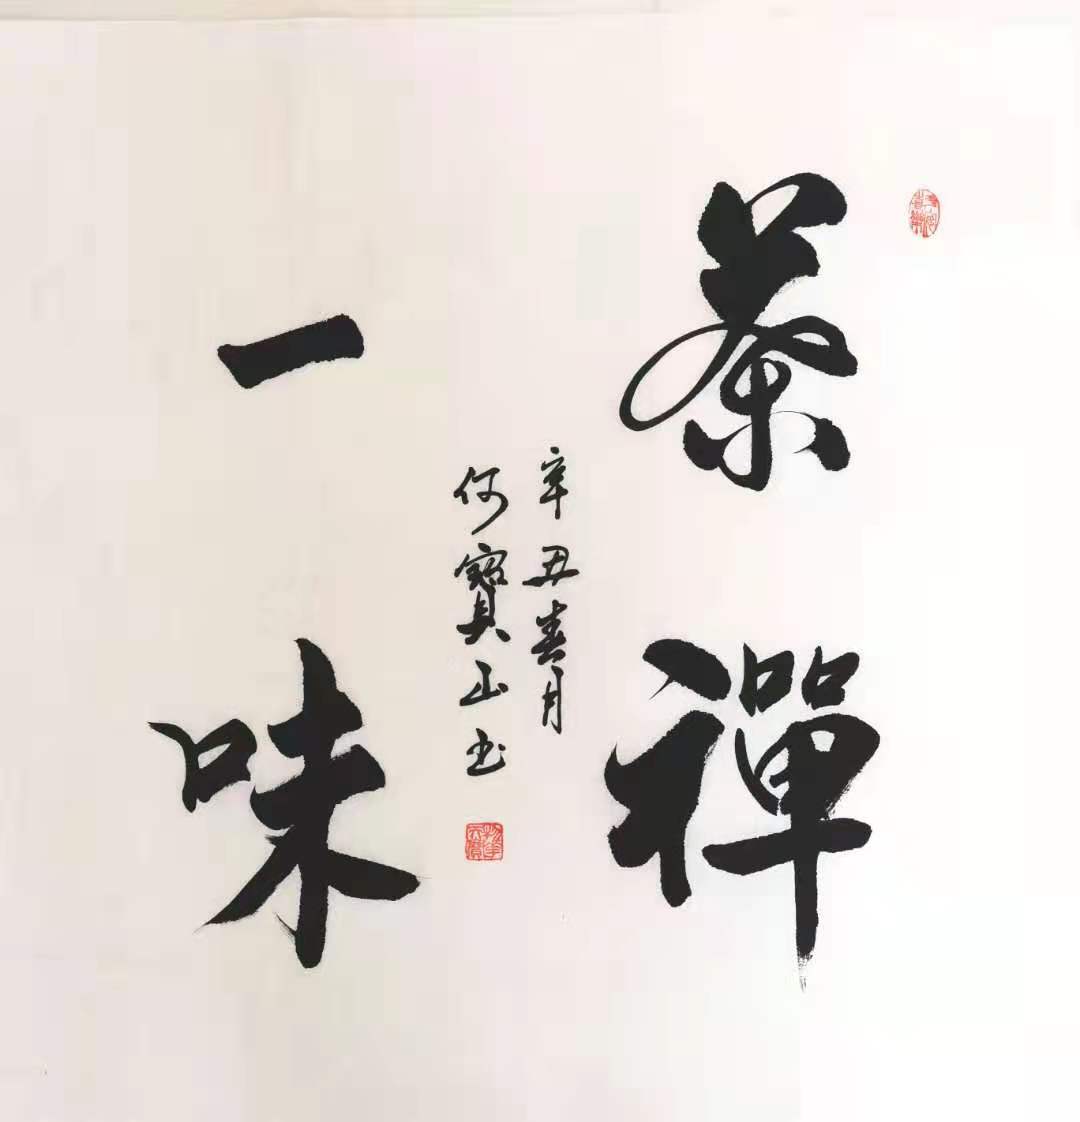 茶禪
一味
辛丑春月
何寶山书